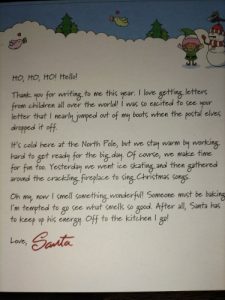 HO, HO, HO! Hello!
Thank you for writing to me this year. I love getting letters
from children all over the world! I was so excited to see your
letter that I nearly jumped out of my boots when the postal elves
dropped it off.
It's cold here at the North Pole, but we stay warm by working
hard to get ready for the big day. Of course, we make time
for fun too. Yesterday we went ice skating and then gathered
around the crackling fireplace to sing Christmas songs.
Oh my, now I smell something wonderful! Someone must be baking
I'm tempted to go see what smells so good. After all, Santa has
to keep up his energy. Off to the kitchen I go!
Love, Santa